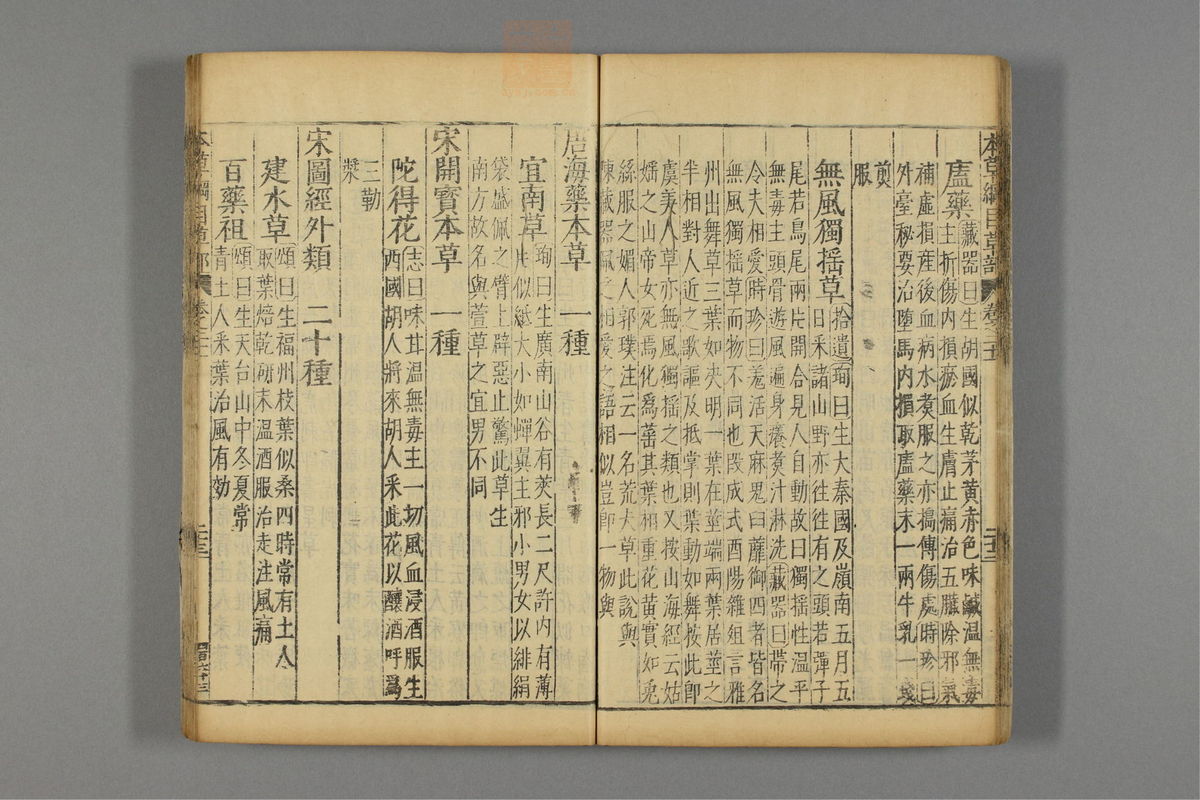 本草綱目草部 卷之二十一
廬藥藏器曰生胡國似乾茅黃赤色味鹹溫無毒
主折傷內損瘀血生膚止痛治五臟除邪氣
補虛損產後血病水煑服之亦搗傅傷處時珍曰
外臺秘要治墮馬內損取廬藥末一兩牛乳一盞
煎
服
無風獨搖草拾遺珣曰生大秦國及嶺南五月五
日采諸山野亦往往有之頭若彈子
尾若鳥尾兩片開合見人自動故曰獨搖性溫平
無毒主頭骨遊風遍身癢煑汁淋洗藏器曰帶之
令夫相愛時珍曰羗活天麻鬼臼薇銜四者皆名
無風獨搖草而物不同也段成式酉陽雜俎言雅
州出舞草三葉如决明一葉在莖端兩葉居莖之
半相對人近之歌謳及抵掌則葉動如舞按此卽
虞美人草亦無風獨搖之類也又按山海經云姑
媱之山帝女死焉化爲䔄其葉相重花黃實如兎
絲服之媚人郭璞注云一名荒夫草此說與
陳藏器佩之相愛之語相似豈卽一物與
唐海藥本草 一種
宜南草珣曰生廣南山谷有莢長二尺許內有薄
片似紙大小如蟬翼主邪小男女以緋絹
袋盛佩之臂上辟惡止驚此草生
南方故名與萱草之宜男不同
宋開寶本草 一種
陀得花志曰味甘溫無毒主一切風血浸酒服生
西國胡人將來胡人采此花以釀酒呼爲
三勒
漿
宋圖經外類 二十種
建水草頌曰生福州枝葉似桑四時常有土人
取葉焙乾研末溫酒服治走注風痛
百藥祖頌曰生天台山中冬夏常
青土人采葉治風有効
本草綱目草部 卷之二十一